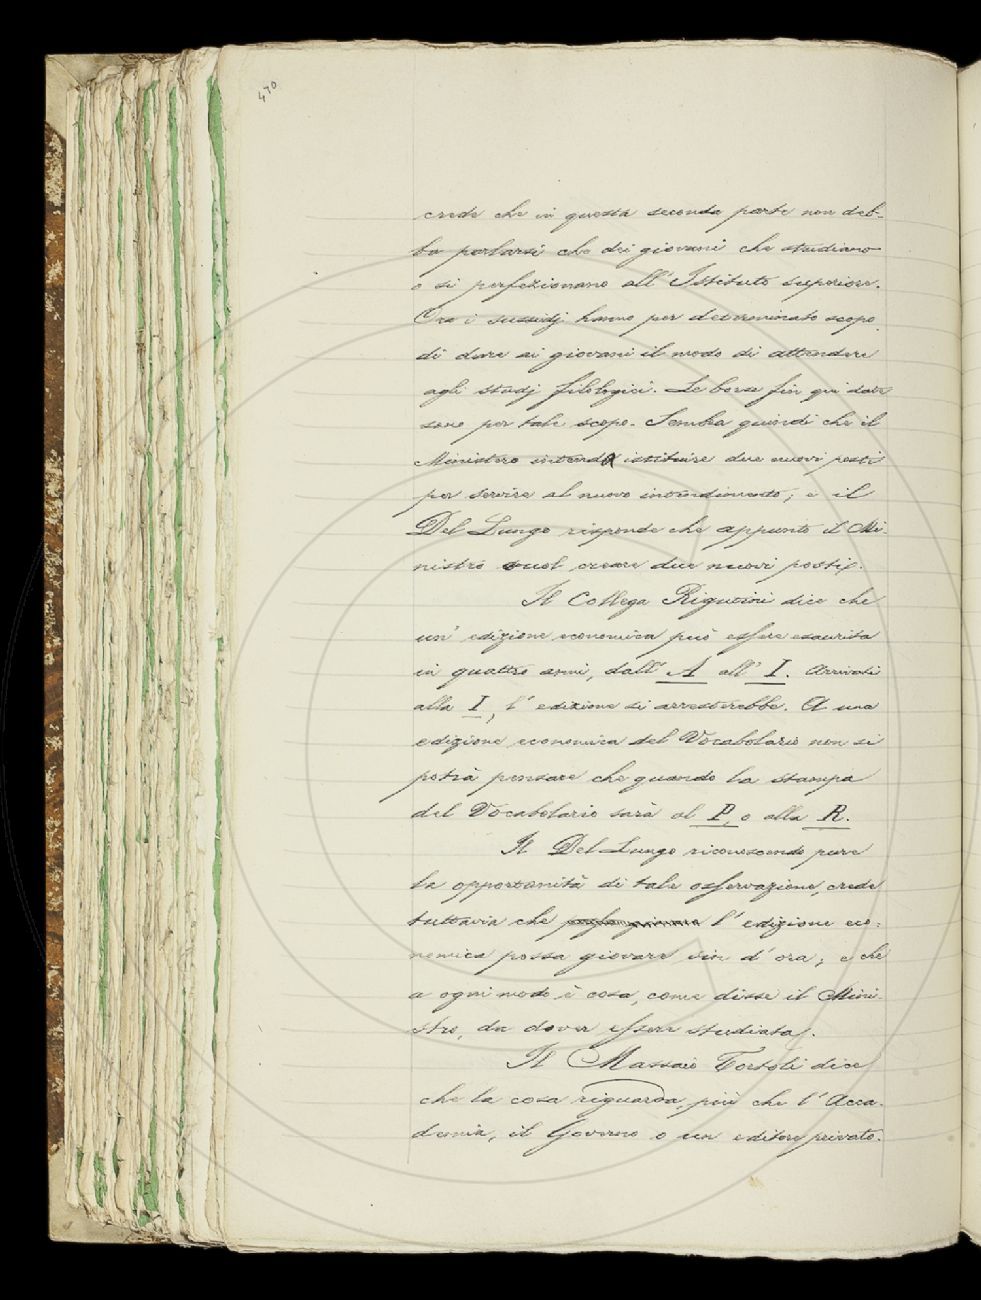 470
crede che in questa seconda parte non deb-
ba parlarsi che dei giovani che studiano
o si perfezionano all'Istituto superiore.
Ora i sussidj hanno per determinato scopo
di dare ai giovani il modo di attendere
agli studj filologici. Le borse fin qui date
sono per tale scopo. Sembra quindi che il
Ministero intenda istituire due nuovi posti
per servire al nuovo intendimento; e il
Del Lungo risponde che appunto il Mi-
nistro vuol creare due nuovi posti.
Il Collega Rigutini dice che
un'edizione economica può essere esaurita
in quattro anni, dall'A all'I. Arrivati
alla I, l'edizione si arresterebbe. A una
edizione economica del Vocabolario non si
potrà pensare che quando la stampa
del Vocabolario sarà al P, o alla R.
Il Del Lungo riconoscendo pure
la opportunità di tale osservazione, crede
tuttavia che l'edizione eco-
nomica possa giovare sin d'ora; e che
a ogni modo è cosa, come disse il Mini-
stro, da dover essere studiata.
Il Massaio Tortoli dice
che la cosa riguarda, più che l'Acca-
demia, il Governo o un editore privato.